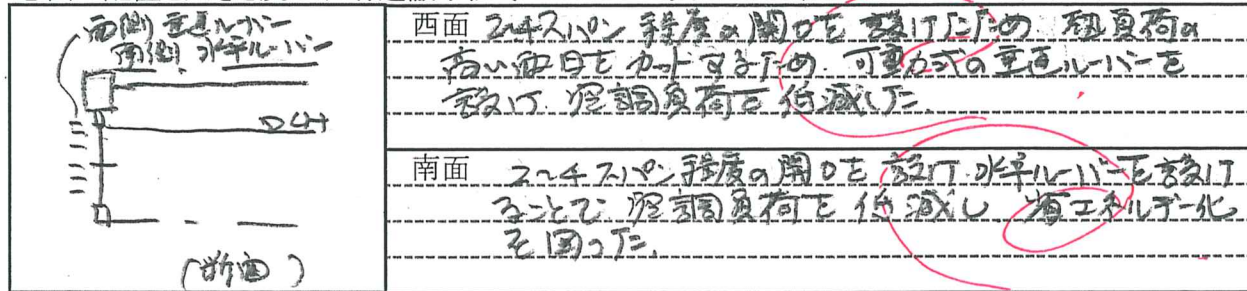 西側 垂直ルーバー
南側 水平ルーバー
▽CH
(断面)
西面 2〜4スパン程度の開口を設けたため、熱負荷の
高い西日をカットするため、可動式の垂直ルーバーを
設け、空調負荷を低減した。
南面 2〜4スパン程度の開口を設け、水平ルーバーを設け
ることで、空調負荷を低減し、省エネルギー化
を図った。